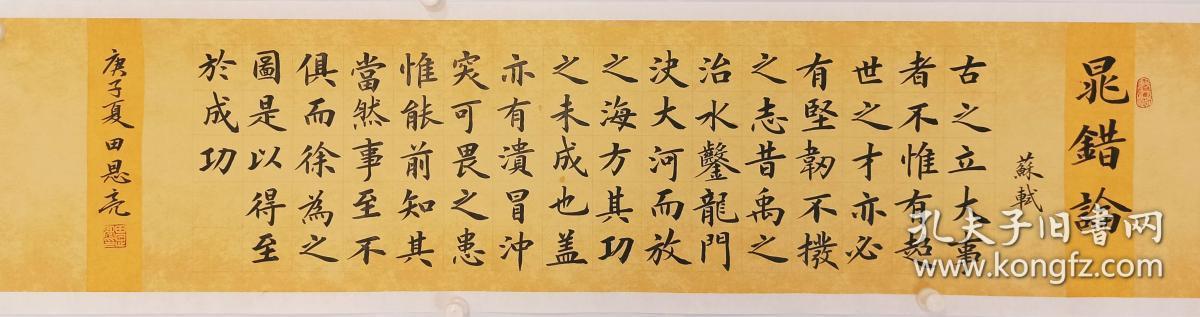 晁錯論
蘇軾
古之立大事
者不惟有超
世之才亦必
有堅韌不撥
之志昔禹之
治水鑿龍門
決大河而放
之海方其功
之未成也盖
亦有潰冒冲
突可畏之患
惟能前知其
當然事至不
俱而徐為之
圖是以得至
於成功
庚子夏田恩亮
孔夫子旧书网
www.kongfz.com